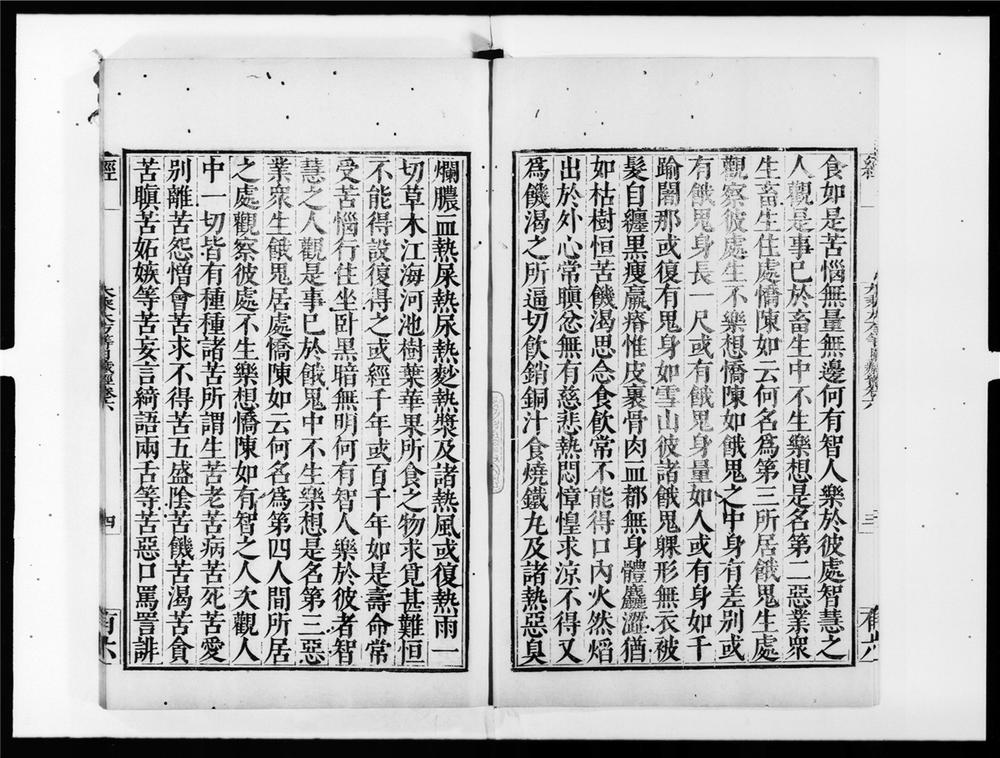 食如是苦惱無量無邊何有智人樂於彼處智慧之
人觀是事已於畜生中不生樂想是名第二惡業衆
生畜生住處憍陳如云何名爲第三所居餓鬼生處
觀察彼處生不樂想憍陳如餓鬼之中身有差別或
有餓鬼身長一尺或有餓鬼身量如人或有身如千
踰闍那或復有鬼身如雪山彼諸餓鬼躶形無衣被
髮自纏黑瘦羸瘠惟皮裹骨肉血都無身體麤澀猶
如枯樹恒苦饑渴思念食飲常不能得口內火然熖
出於外心常瞋忿無有慈悲熱悶慞惶求涼不得又
爲饑渴之所逼切飲銷銅汁食燒鐵丸及諸熱惡臭
爛膿血熱屎熱尿熱麨熱漿及諸熱風或復熱雨一
切草木江海河池樹葉華果所食之物求覓甚難恒
不能得設復得之或經千年或百千年如是壽命常
受苦惱行住坐臥黑暗無明何有智人樂於彼者智
慧之人觀是事已於餓鬼中不生樂想是名第三惡
業衆生餓鬼居處憍陳如云何名爲第四人間所居
之處觀察彼處不生樂想憍陳如有智之人次觀人
中一切皆有種種諸苦所謂生苦老苦病苦死苦愛
別離苦怨憎會苦求不得苦五盛陰苦饑苦渴苦貪
苦瞋苦妬嫉等苦妄言綺語兩舌等苦惡口罵詈誹
經
四